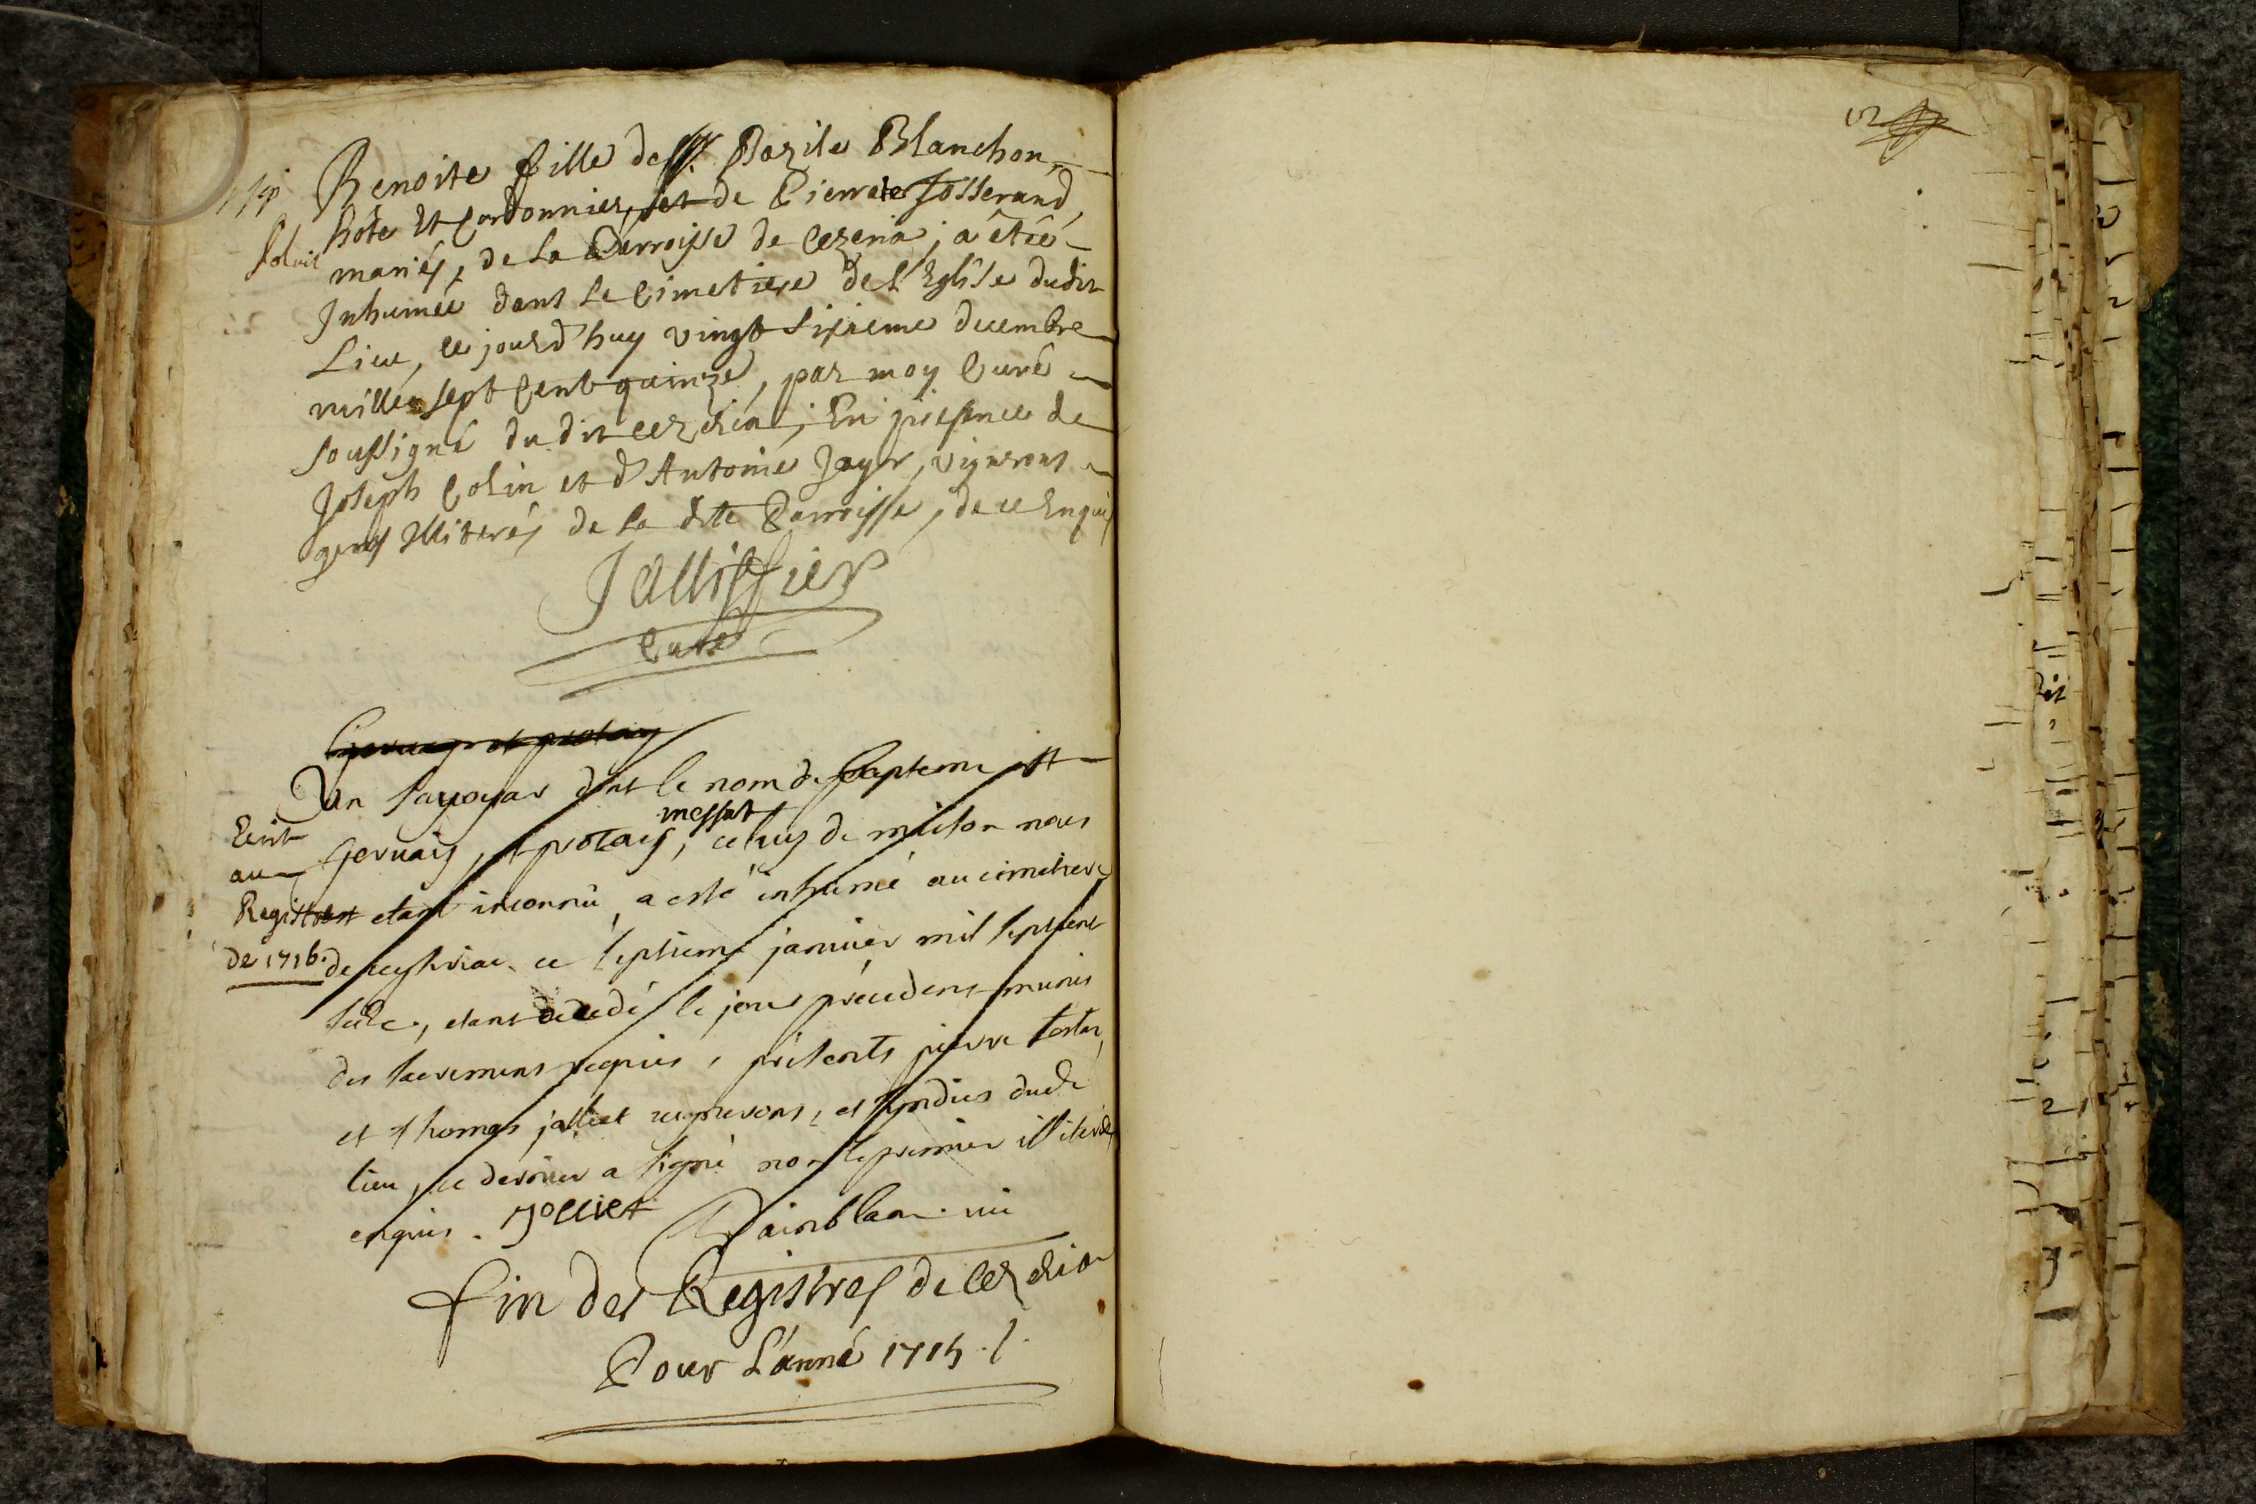 Benoite fille de Bazile Blanchon,
hôte et Cordonnier, et de Pierrete Josserand
Solvit
mariés, de la Parroisse de Cezeria; a êtéé
Inhumée dans le Cimetiere de l'Eglise dudit
Lieu, ce jourd'huy vingt sixieme decembre
mille sept Cent quinze, par moy Curé
soussigné du dit Cezeria; En presence de
Joseph Colin et d'Antoine Jayr, vignerons
gens Illiterés de la dite Parroisse, de ce Enquis
Jallissier
Curé
Gervays et protays
Un Savoyar dont le nom de bapteme est
messat
Gervais, et protais, celuy de maison nous
Ecrit
au
Registre
de 1716.
etant inconnü, a esté inhumé au cimetiere
de ceyseriac ce septieme janvier mil septcent
seize, etant decedé le jour précedent munis
des sacremens requis, présents pierre
et thomas jolliet vignerons, et sindics dudt
lieu, ce dernier a signé non le premier illiteré
enquis. Jolliet
Painblanc
fin des Registres de Cezeria
Pour L'anné 1715.
12